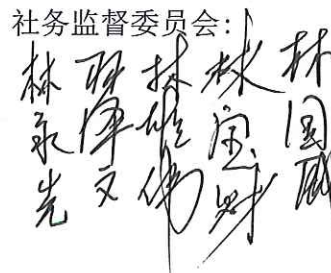 社务监督委员会:
林永先 林泽文 林雄伟 林宝财 林国威